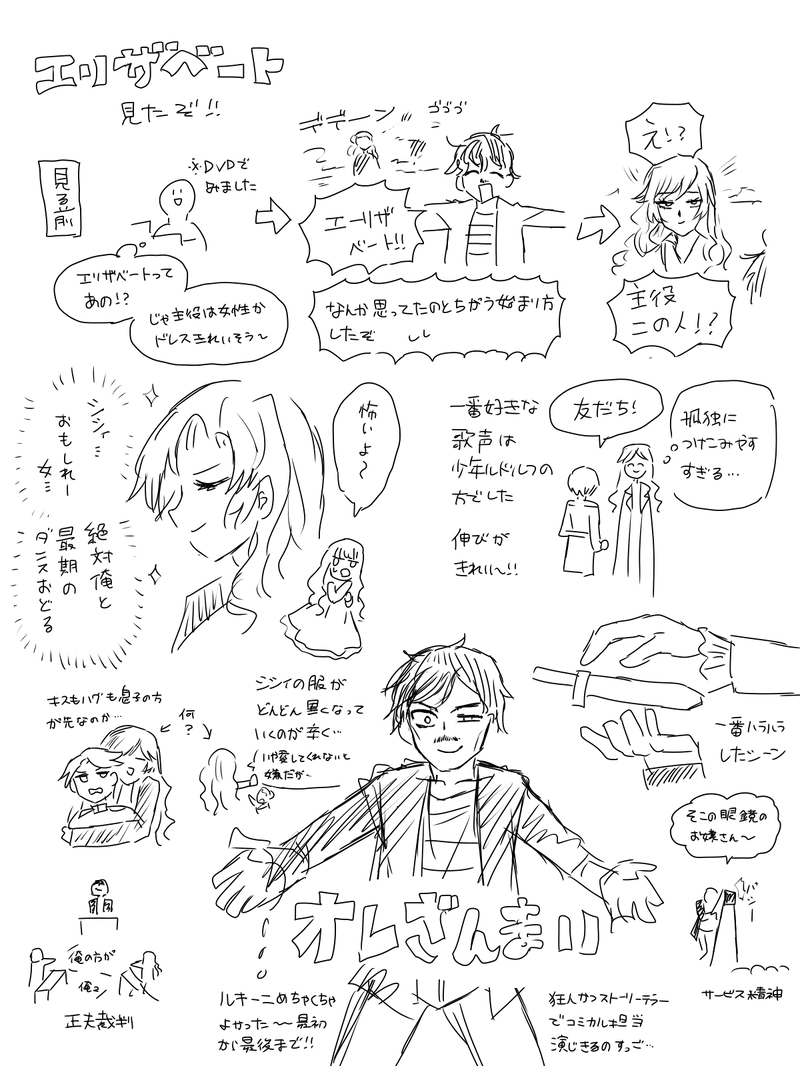 エリザベート
見たぞ!!
見る前
※DVDで
みました
エリザベートって
あの!?
じゃ主役は女性か
ドレスきれいそう〜
デデーン
ゴゴゴ
エーリザ
ベート!!
なんか思ってたのとちがう始まり方
したぞ
え!?
主役
この人!?
シシィ…
おもしれー
女…
絶対俺と
最期の
ダンスおどる
怖いよ〜
一番好きな
歌声は
少年ルドルフの
方でした
伸びが
きれい〜!!
友だち!
孤独に
つけこみやす
すぎる…
キスもハグも息子の方
が先なのか…
何
?
シシィの服が
どんどん黒くなって
いくのが辛く…
いや愛してくれないと
嫌だが〜
一番ハラハラ
したシーン
そこの眼鏡の
お嬢さん〜
バシー
サービス精神
俺の方が
俺ヨ
正夫裁判
オレざんまい
ルキーニめちゃくちゃ
よかった〜〜最初
から最後まで!!
狂人かつストーリーテラー
でコミカル担当
演じきるのすっご…